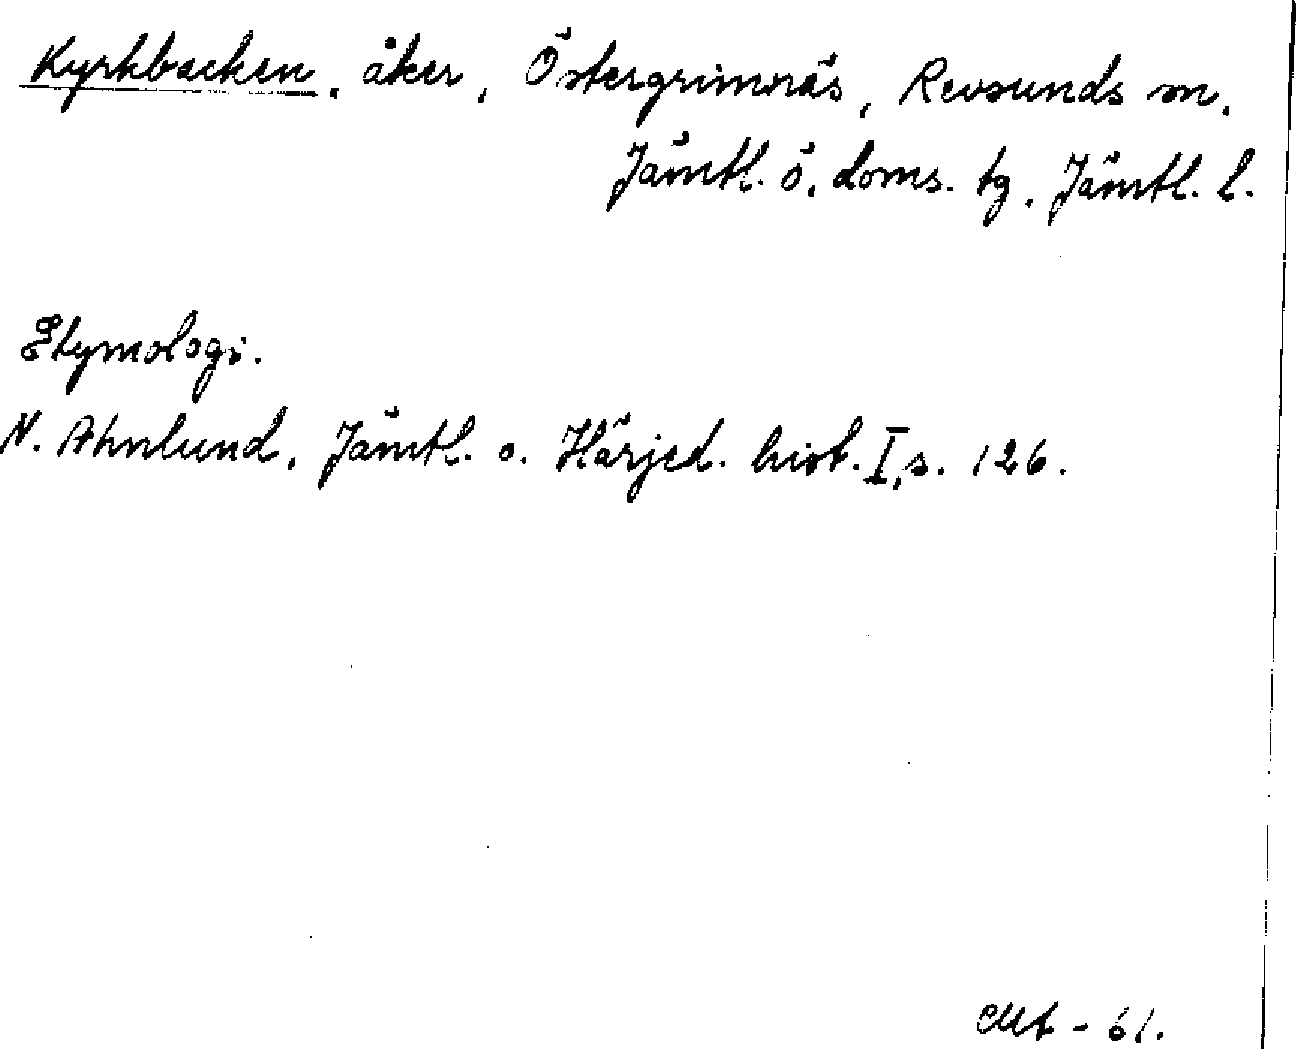 Kyrkbacken, åker, Östergrimnäs, Revsunds sn,
Jämtl. ö. doms. tg, Jämtl. l.
Etymologi.
N. Ahnlund, Jämtl. o. Härjed. hist. I, s. 126.
- 61.